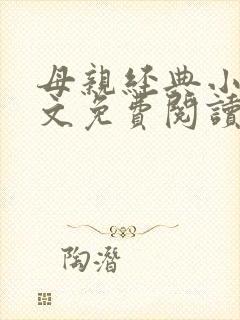 母親經典小
文免費閱讀
陶潛